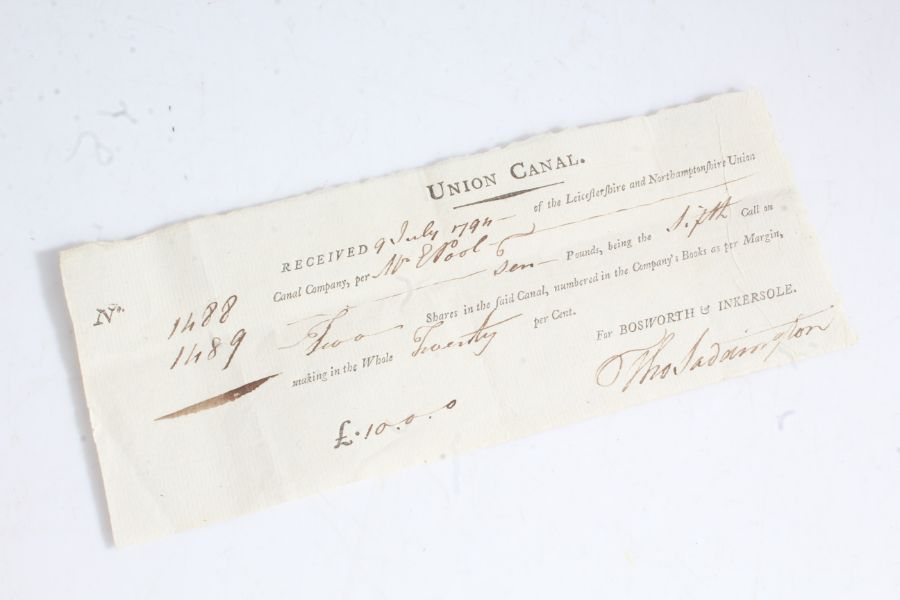 UNION CANAL.
RECEIVED 9 July 1794 of the Leicestershire and Northamptonshire Union
Canal Company, per Mr E Pool
Ten Pounds, being the fifth Call on
No. 1488 Two Shares in the said Canal, numbered in the Company's Books as per Margin,
1489 making in the Whole Twenty per Cent.
For BOSWORTH & INKERSOLE.
£.10.0.0 Tho Saddington